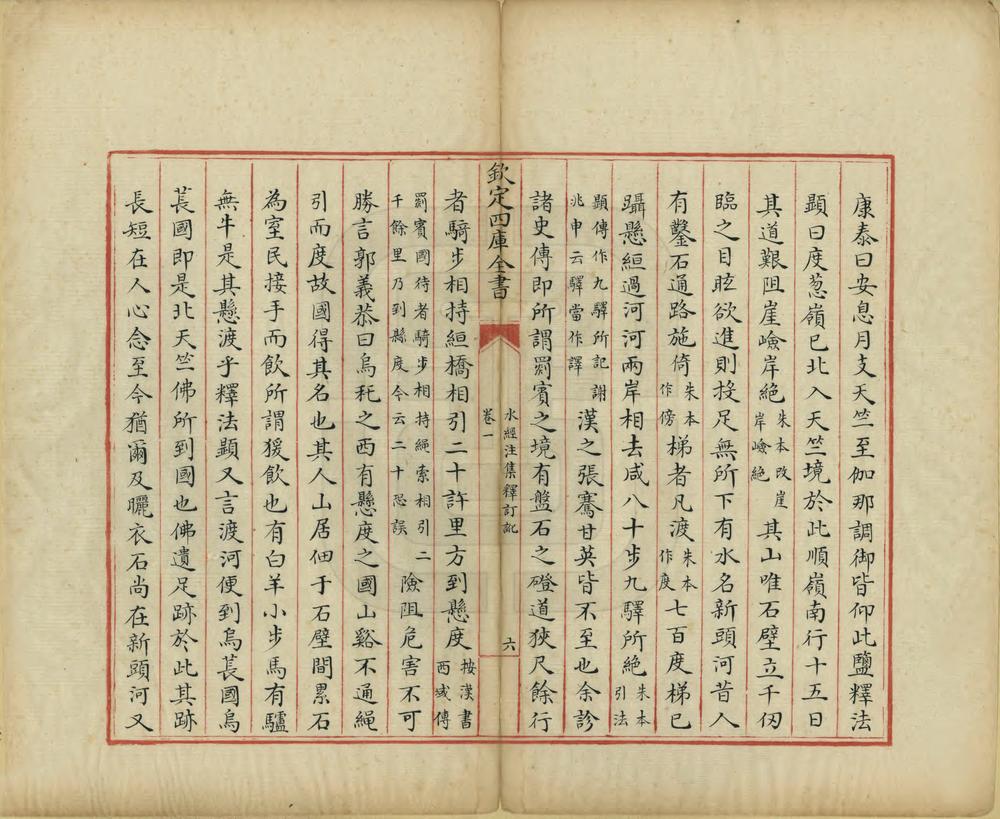 康泰曰安息月支天竺至伽那調御皆仰此鹽釋法
顯曰度葱嶺已北入天竺境於此順嶺南行十五日
其道艱阻崖嶮岸絶朱本改崖岸嶮絶其山唯石壁立千仞
臨之目眩欲進則投足無所下有水名新頭河昔人
有鑿石通路施倚朱本作傍梯者凡渡朱本作度七百度梯已
躡懸絙過河河兩岸相去咸八十步九驛所絶朱本引法
顯傳作九驛所記謝兆申云驛當作譯漢之張騫甘英皆不至也余診
諸史傳即所謂罽賓之境有盤石之磴道狹尺餘行
欽定四庫全書
水經注集釋訂訛
卷一
六
者騎步相持絙橋相引二十許里方到懸度按漢書西域傳
罽賓國待者騎步相持繩索相引二千餘里乃到縣度今云二十恐誤險阻危害不可
勝言郭義恭曰烏秅之西有懸度之國山谿不通繩
引而度故國得其名也其人山居佃于石壁間累石
為室民接手而飲所謂猨飲也有白羊小步馬有驢
無牛是其懸渡乎釋法顯又言渡河便到烏萇國烏
萇國即是北天竺佛所到國也佛遺足跡於此其跡
長短在人心念至今猶爾及曬衣石尚在新頭河又